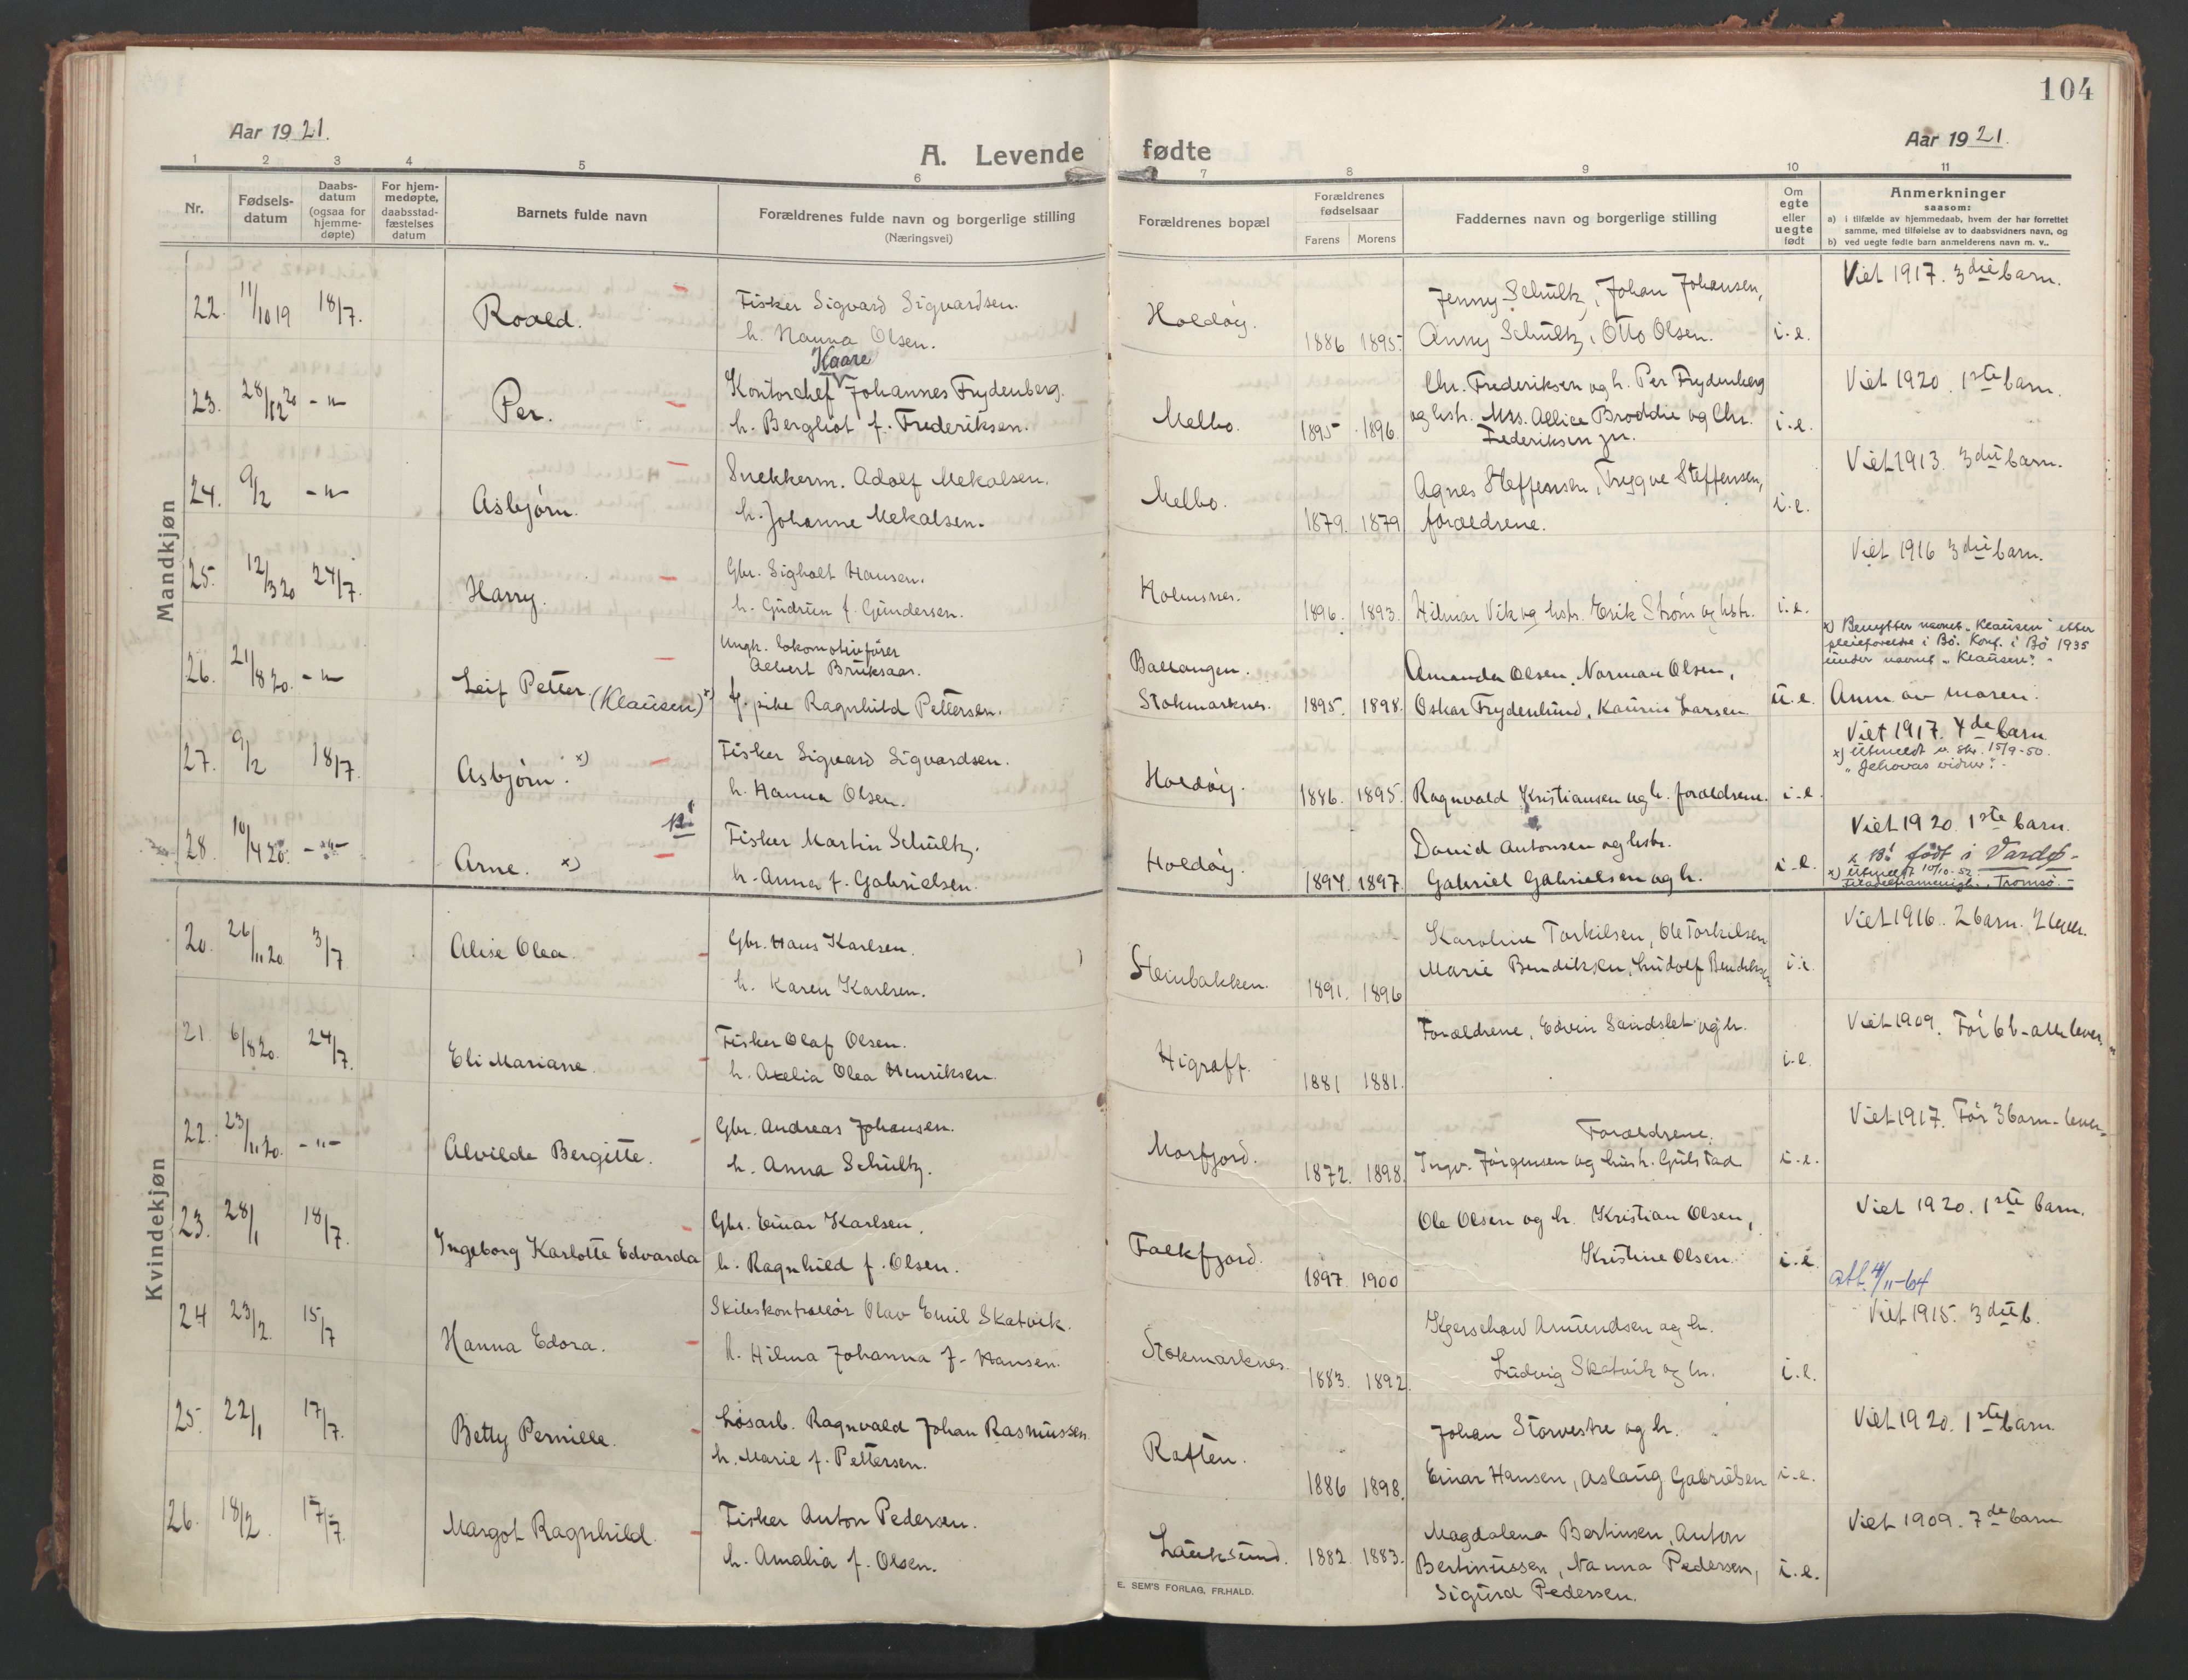 104
Aar 1921.
A. Levende fødte
Aar 1921.
1 2 3 4 5 6 7 8 9 10 11
Nr.
Fødsels-datum
Daabs-datum (ogsaa for hjemme-døpte)
For hjem-medøpte, daabsstad-fæstelses datum
Barnets fulde navn
Forældrenes fulde navn og borgerlige stilling
(Næringsvei)
Forældrenes bopæl
Forældrenes fødselsaar
Farens Morens
Faddernes navn og borgerlige stilling
Om egte eller uegte født
Anmerkninger
saasom:
a) i tilfælde av hjemmedaab, hvem der har forrettet samme, med tilføielse av to daabsvidners navn, og
b) ved uegte fødte barn anmelderens navn m. v..
Mandkjøn
22. 11/10 19 18/7. Roald. Fisker Sigvard Sigvardsen. Holdøy. 1886 1895. Jenny Schultz, Johan Johansen, i.e. Viet 1917. 3die barn.
h. Hanna Olsen. Anny Schultz, Otto Olsen.
Kaare
23. 28/12 20 -"- Per. Kontorchef Johannes Frydenberg. Melbo. 1895 1896. Chr. Frederiksen og h. Per Frydenberg i.e. Viet 1920. 1ste barn.
h. Bergliot f. Frederiksen. og hstr. Mrs. Allice Broddie og Chr.
Frederiksen jr.
24. 9/2 -"- Asbjørn. Snekkerm. Adolf Mekalsen. Melbo. 1879. 1879 Agnes Steffensen, Trygve Steffensen, i.e. Viet 1913. 3die barn.
h. Johanne Mekalsen. forældrene.
25. 12/3 20 24/7. Harry. Gbr. Sigholt Hansen. Holmsnes. 1896. 1893. Hilmar Vik og hstr. Erik Strøm og hstr. i.e. Viet 1916 3die barn.
h. Gudrun f. Gundersen.
26. 21/8 20. -"- Leif Petter. (Klausen) x) Ungk. Lokomotivfører Ballangen. Amanda Olsen, Norman Olsen, x) Benytter navnet "Klausen" efter
Albert Bruksaas. pleieforeldre i Bø. Konf. i Bø 1935
under navnet "Klausen".
pike Ragnhild Pettersen. Stokmarknes. 1895. 1898. Oskar Frydenlund, Kaurin Larsen. u.e. Anm av moren.
27. 9/2 18/7. Asbjørn. x) Fisker Sigvard Sigvardsen. Holdøy. 1886. 1895. Ragnvald Kristiansen og h. forældrene. i.e. Viet 1917. 4de barn
h. Hanna Olsen. x) Utmeldt v. skr. 15/9-50.
"Jehovas vidner".
28. 10/4 20. -"- Arne. x) Fisker Martin Schultz. Holdøy. 1894. 1897. David Antonsen og hstr. i.e. Viet 1920. 1ste barn.
h. Anna f. Gabrielsen. Gabriel Gabrielsen og h. født i Vardø -
x) Utmeldt 10/10-52
Tromsø. -
Kvindekjøn
20. 26/11 20. 3/7 Alise Olea. Gbr. Hans Karlsen. Steinbakken. 1891. 1896 Karoline Torkilsen, Ole Torkilsen i.e. Viet 1916. 2 barn. 2 lever.
h. Karen Karlsen. Marie Bendiksen, Ludolf Bendiksen
21. 6/8 20. 24/7. Eli Mariane. Fisker Olaf Olsen. Higraff. 1881 1881. Forældrene, Edvin Sandslet og h. i.e. Viet 1909. Før 6 b - alle lever.
h. Axelia Olea Henriksen.
22. 23/11 20. -"- Alvilde Bergitte. Gbr. Andreas Johansen. Morfjord. 1872. 1898. Forældrene. i.e. Viet 1917. Før 3 barn - lever.
h. Anna Schultz. Ingv. Jørgensen og hustr. Gulstad
23. 28/1 18/7. Ingeborg Karlotte Edvarda Gbr. Einar Karlsen. Falkfjord. 1897. 1900 Ole Olsen og h. Kristian Olsen, i.e. Viet 1920. 1ste barn.
h. Ragnhild f. Olsen. Kristine Olsen. att. 4/11-64
24 23/2. 15/7 Hanna Edora. Skibskontrollør Olav Emil Skatvik. Stokmarknes. 1883. 1892. Kjerschow Amundsen og h. i.e. Viet 1915. 3die b.
h. Hilma Johanna f. Hansen. Ludvig Skatvik og h.
25. 22/1 17/7. Betty Pernille. Løsarb. Ragnvald Johan Rasmussen. Raften. 1886 1898. Johan Storvestre og h. i.e. Viet 1920. 1ste barn.
h. Marie f. Pettersen. Einar Hansen, Aslaug Gabrielsen
26. 18/2 17/7. Margot Ragnhild. Fisker Anton Pedersen. Lauksund. 1882. 1883. Magdalena Bertinsen, Anton i.e. Viet 1909. 7de barn
h. Amalia f. Olsen. Bertinussen, Nanna Pedersen,
Sigurd Pedersen.
E. SEM'S FORLAG, FR.HALD.